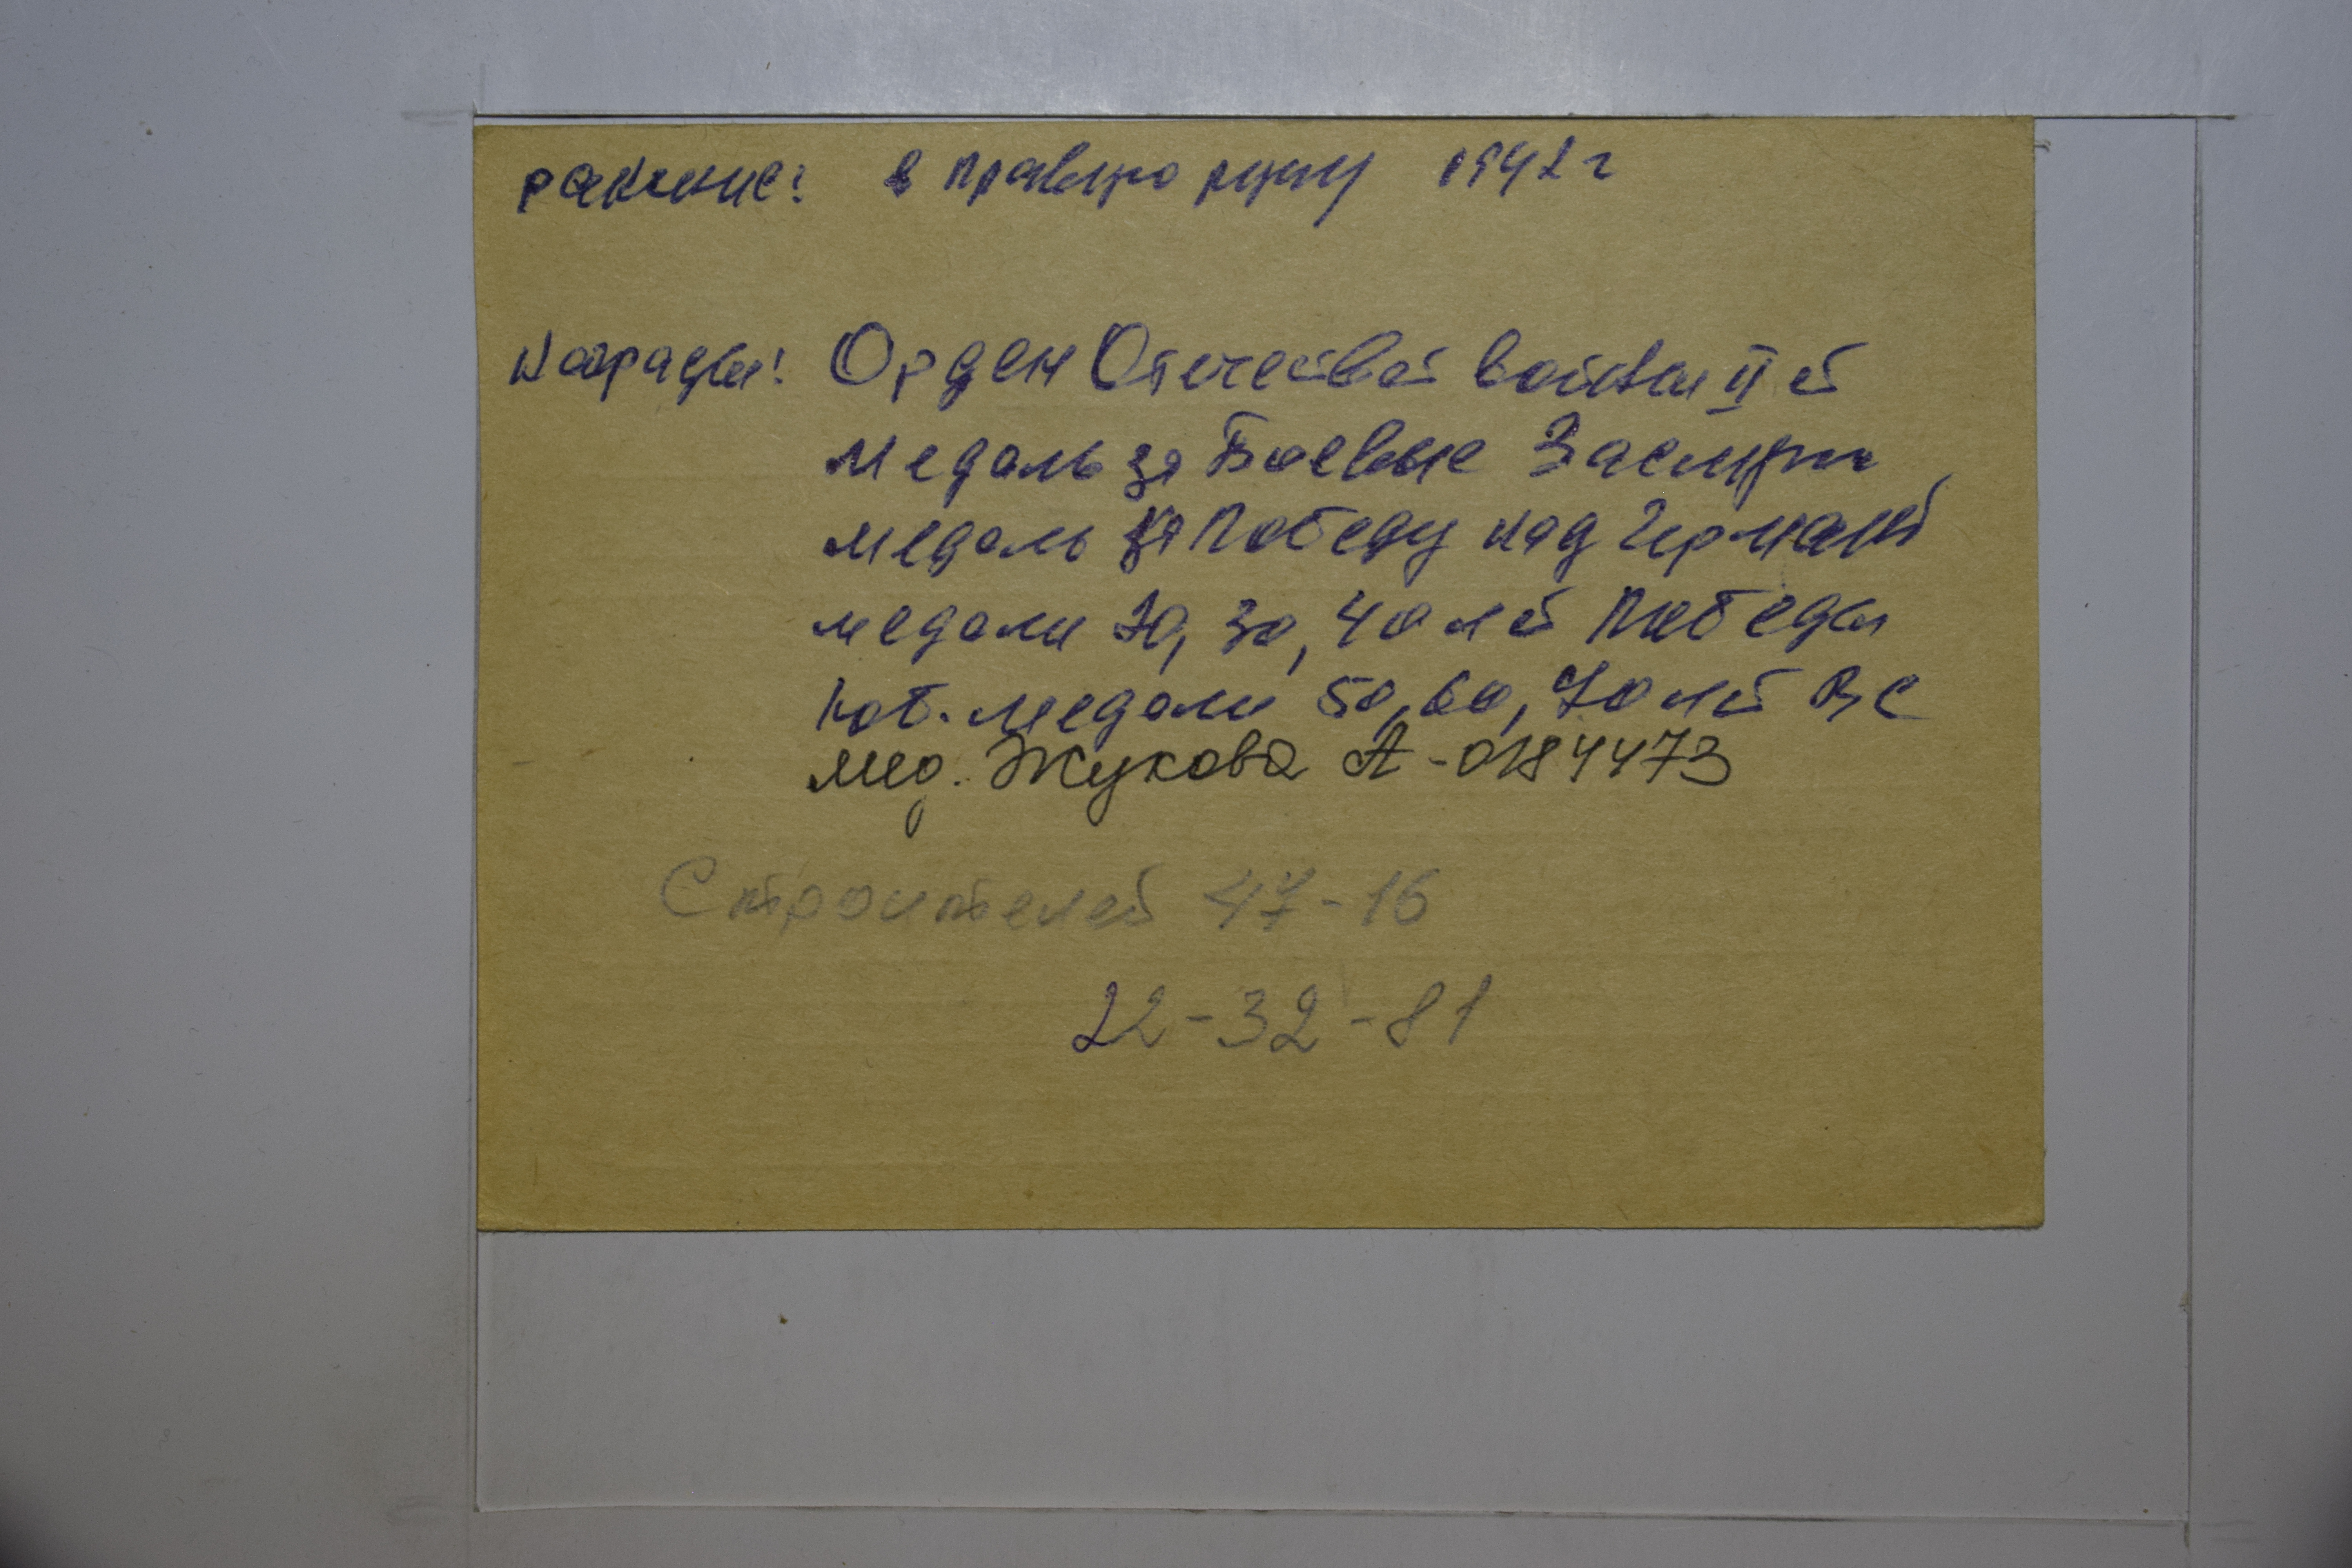 ранение: в правую руку 1942 г
Награды: Орден Отечествой войны II й
медаль за Боевые Заслуги
медаль за Победу над Германией
медали 20, 30, 40 лет Победы
юб. медали 50, 60, 70 лет ВС
мед. Жукова А-0184473
Строителей 47-16
22-32-81